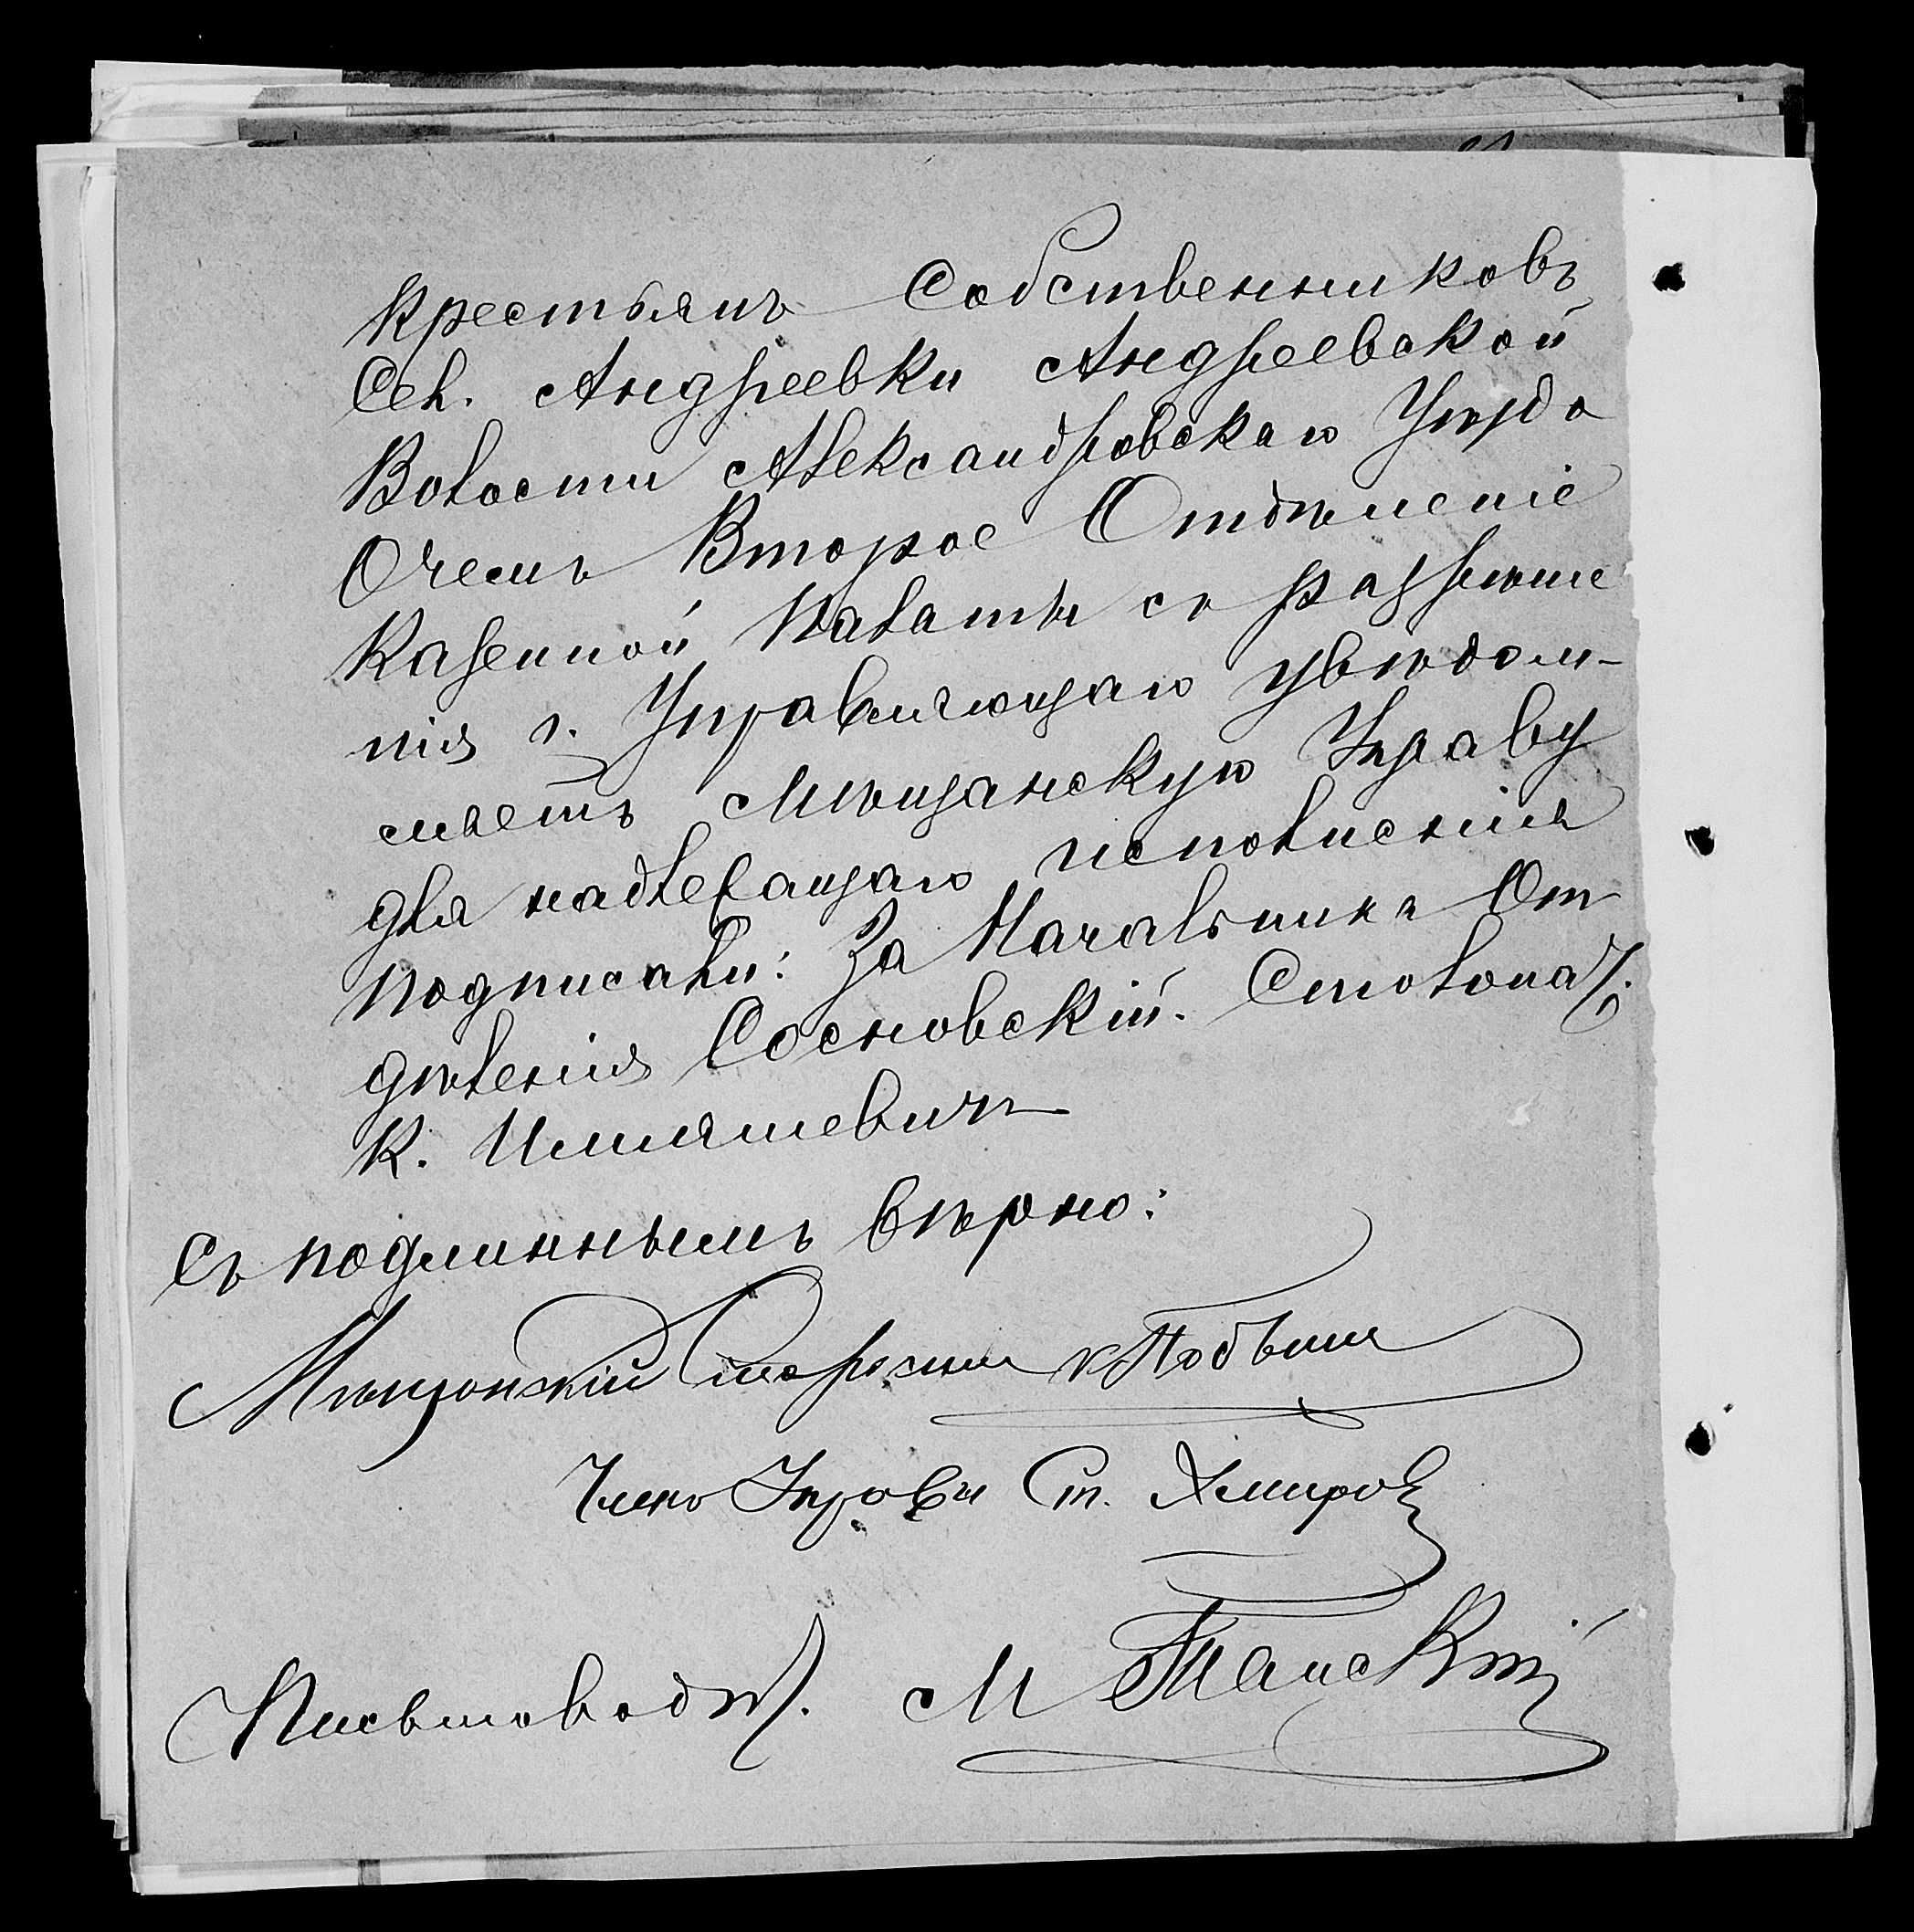 крестьянъ Собственниковъ
Сел. Андреевки Андреевской
Волости Александровскаго Уѣзда
О чемъ Второе Отдѣленіе
Казенной Палаты съ разрѣше
нія г. Управляющаго увѣдом-
ляетъ Мѣщанскую Управу
для надлежащаго исполненія
подписали: За Начальника От
дѣленія Сосновскій. Столонач.
К. Имшяшевичъ
Съ подлиннымъ вѣрно:
Мѣщанскій Староста
Членъ Управы Ст. Хмыровъ
Письмоводит. М Танскій